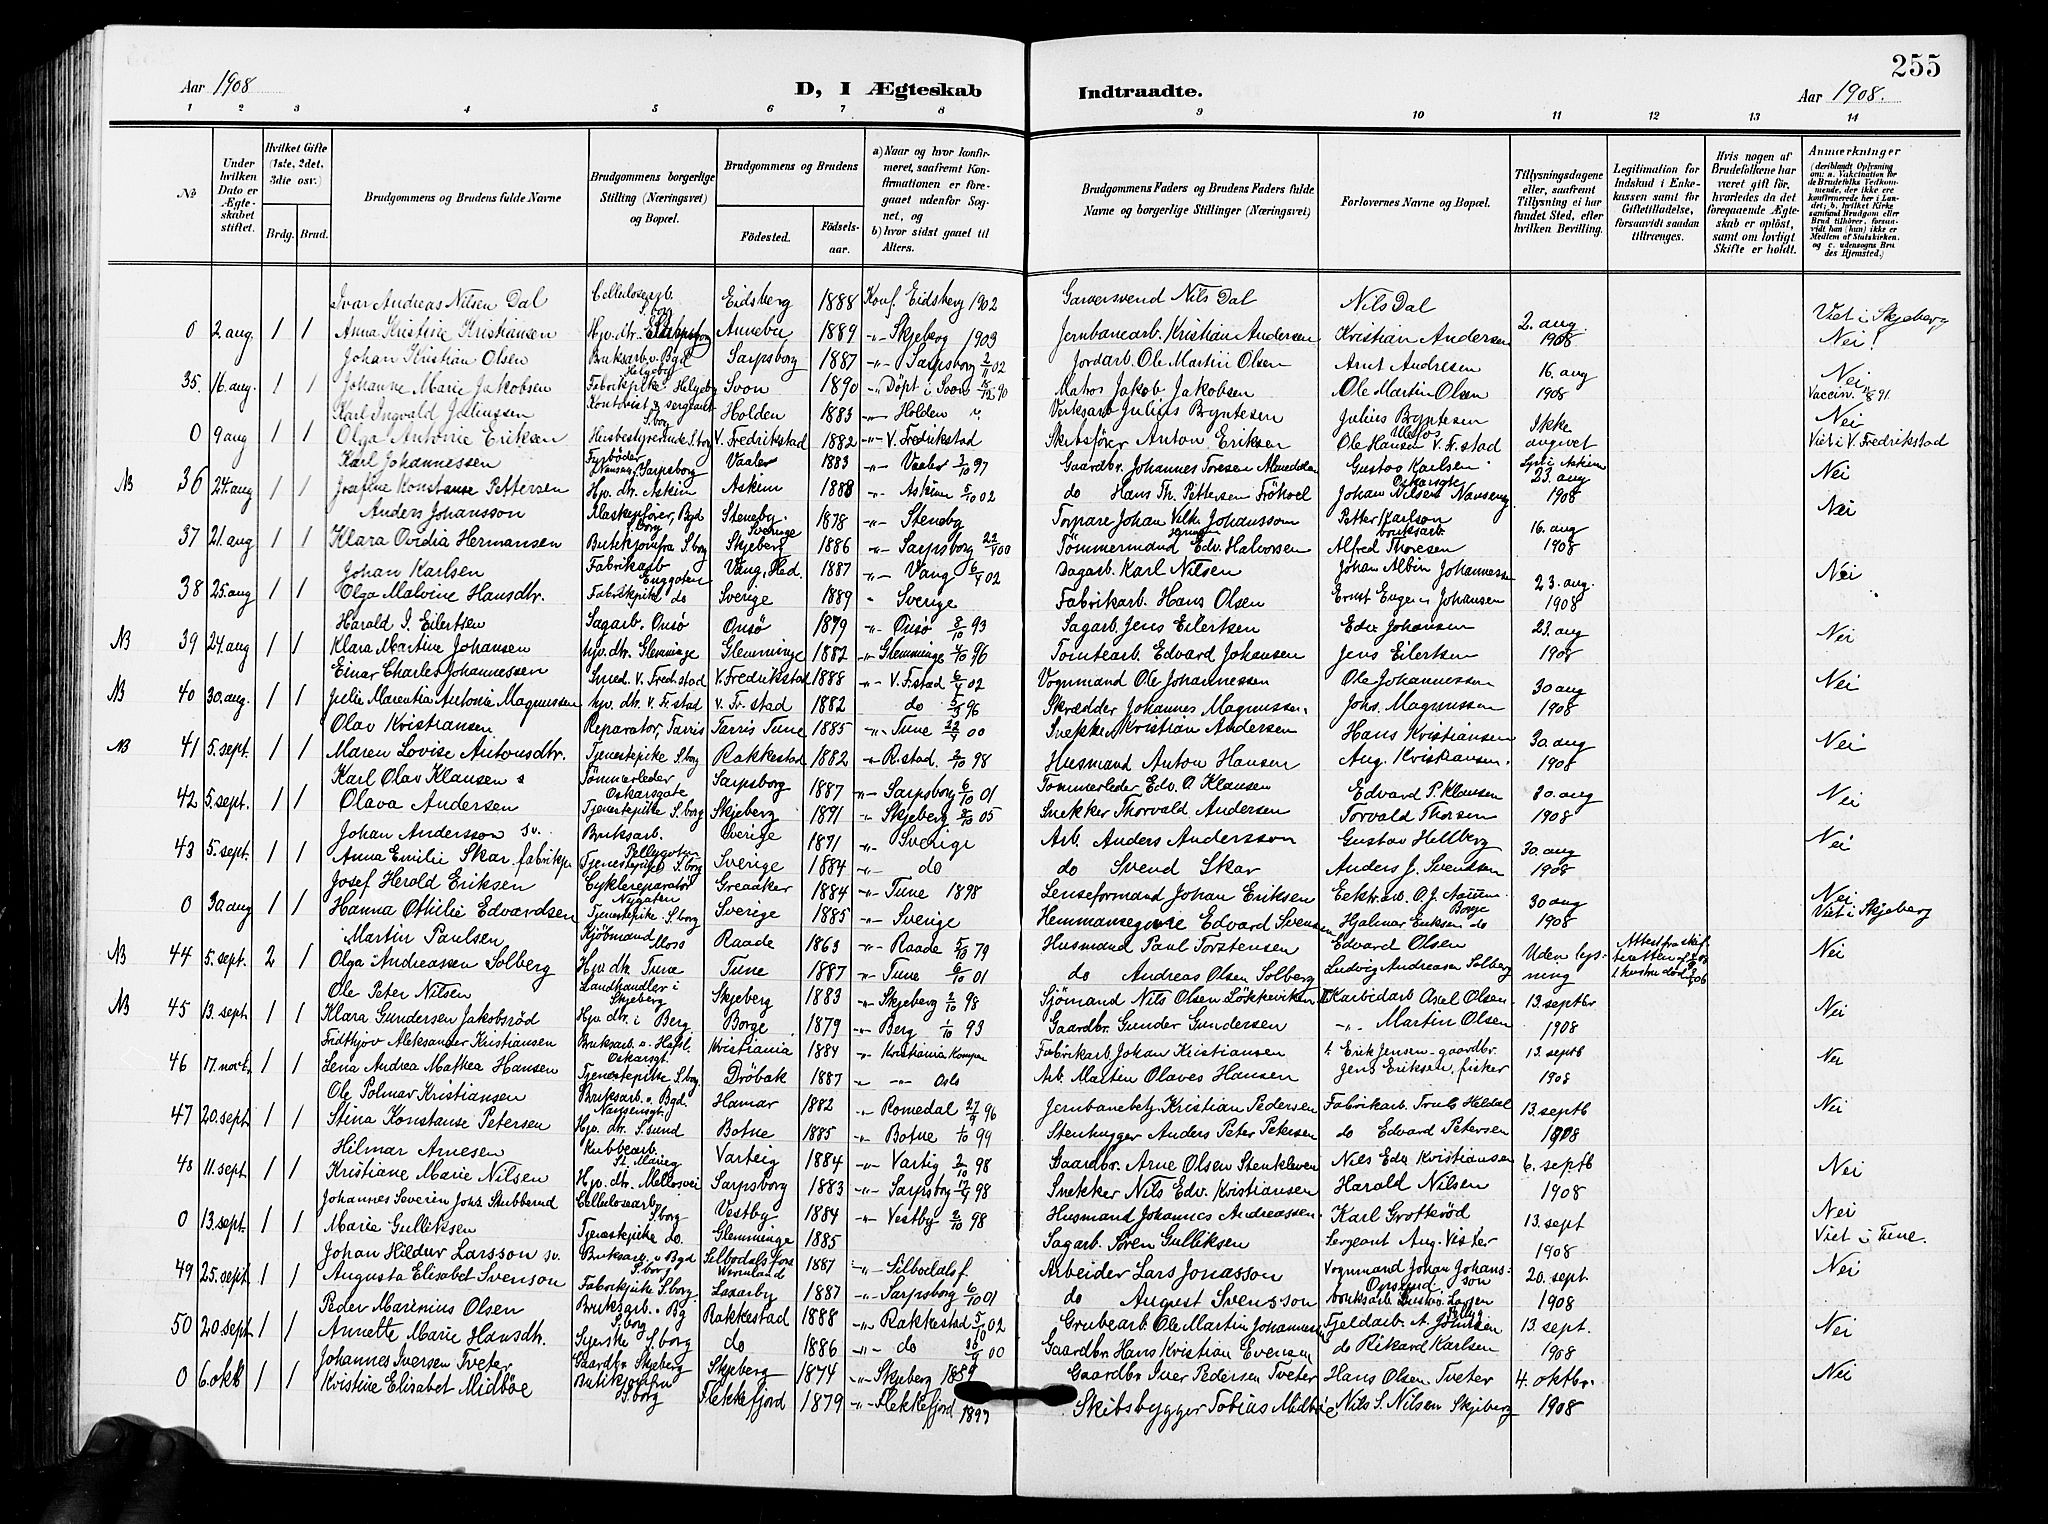 255
Aar 1908
D, I Ægteskab
Indtraadte.
Aar 1908.
1 2 3 4 5 6 7 8 9 10 11 12 13 14
No
Under hvilken Dato er Ægteskabet stiftet.
Hvilket Gifte (1ste, 2det, 3die osv.)
Brdg. Brud.
Brudgommens og Brudens fulde Navne
Brudgommens borgerlige Stilling (Næringsvei) og Bopæl.
Brudgommens og Brudens
Fødested. Fødsels-aar.
a) Naar og hvor konfirmeret, saafremt Konfirmationen er foregaaet udenfor Sognet, og
b) hvor sidst gaaet til Alters.
Brudgommens Faders og Brudens Faders fulde Navne og borgerlige Stillinger (Næringsvei)
Forlovernes Navne og Bopæl.
Tillysningsdagene eller, saafremt Tillysning ei har fundet Sted, efter hvilken Bevilling.
Legitimation for Indskud i Enkekassen samt for Giftetilladelse, forsaavidt saadan tiltrænges.
Hvis nogen af Brudefolkene har været gift før, hvorledes da det foregaaende Ægteskab er opløst, samt om lovligt Skifte er holdt.
Anmærkninger (deriblandt Oplysning om: a. Vakcination for de Brudefolks Vedkommende, der ikke ere konfirmerede her i Landet; b. hvilket Kirkesamfund Brudgom eller Brud tilhører, forsaavidt han (hun) ikke er Medlem af Statskirken, og c. udensogns Brudes Hjemsted.)
Ivar Andreas Nilsen Dal Cellulosearb. S.borg Eidsberg 1888 Konf. Eidsberg 1902 Garversvend Nils Dal Nils Dal Viet i Skjeberg
0 2. aug. 1 1 Anna Kristine Kristiansen Hjv. dtr. Sarpsborg Annebu 1889 -"- Skjeberg 1903 Jernbanearb. Kristian Andersen Kristian Andersen 2. aug. 1908 Nei!
Johan Kristian Olsen Bruksarb. v. Bgd Helgeby Sarpsborg 1887 -"- Sarpsborg 2/11 02 Jordarb. Ole Martin Olsen Arnt Andresen 16. aug
35. 16. aug. 1 1 Johanne Marie Jakobsen Fabrikpike Helgeby Svon 1890 -"- Døpt i Svon 90 Matros Jakob Jakobsen Ole Martin Olsen 1908 Nei Vaccin. 91.
Karl Ingvald Juliussen Kontorist & sergeant S.borg Holden 1883 -"- Holden Verksarb Julius Bryntesen Julius Bryntesen Ulefos Ikke Nei
0 9 aug 1 1 Olga Antonie Eriksen Husbestyrerinde S.borg V. Fredrikstad 1882 -"- V. Fredrikstad Skibsfører Anton Eriksen Ole Hansen V. Fr.stad angivet Viet i V. Fredrikstad
Karl Johannessen Fyrbøder Nanseng. Sarpsborg Vaaler 1883 -"- Vaaler 3/10 97 Gaardbr. Johannes Toresen Gustav Karlsen Oskarsgte Lyst i Askim Nei
NB 36 24. aug 1 1 Josefine Konstanse Pettersen Hjv. dtr. Askim Askim 1888 -"- Askim 5/10 02 do Hans Th. Pettersen Frøhoel Johan Nilsen Nanseng 23. aug 1908
Anders Johansson Steneby. Sverige 1878 -"- Steneby Torpare Johan Vilh. Johansson Petter Karlson bruksarb. 16. aug Nei
37 21. aug 1 1 Klara Ovidia Hermansen Butikjomfru S.borg Skjeberg 1886 -"- Sarpsborg 22/4 00 Tømmermand Edv. Halvorsen Alfred Thoresen 1908
Johan Karlsen Fabrikarb Enggaten Vang, Hed. 1887 -"- Vang 6/4 02 Sagarb. Karl Nilsen Johan Albin Johannessen 23. aug. Nei
38 25. aug 1 1 Olga Malvine Hansdtr. Fabrikpike do Sverige 1889 " Sverige Fabrikarb. Hans Olsen Ernst Eugen Johansen 1908
Harald I. Eilertsen Sagarb. Onsø Onsø 1879 -"- Onsø 8/10 93 Sagarb. Jens Eilertsen Edv Johansen 23. aug Nei
NB 39 24. aug 1 1 Klara Martine Johansen hjv. dtr. Glemminge Glemminge 1882 -"- Glemminge 4/10 96 Tomtearb. Edvard Johansen Jens Eilertsen 1908
Einar Charles Johannessen Smed. V. Fred.stad V. Fredrikstad 1888 -"- V. F.stad 6/4 02 Vognmand Ole Johannessen Ole Johannessen 30 aug Nei
NB 40 30. aug. 1 1 Julie Marentia Antonie Magnussen hjv. dtr. V. Fr.stad V. Fr.stad 1882 do 96 Skrædder Johannes Magnussen. Johs. Magnussen 1908
Olav Kristiansen Reparatør, Tarris Tarris Tune 1885 -"- Tune 22/4 00 Snekker Kristian Andersen Hans Kristiansen 30 aug Nei
NB 41 5. sept. 1 1 Maren Lovise Antonsdtr. Tjenestepike S.borg Rakkestad 1882 -"- R.stad. 2/10 98 Husmand Anton Hansen Aug. Kristiansen. 1908
Karl Olav Klausen Tømmerleder Oskarsgate Sarpsborg 1887 -"- Sarpsborg 6/10 01 Tømmerleder Edv. O Klausen Edvard P. Klausen 30. aug Nei
42 5. sept. 1 1 Olava Andersen Tjenestepike S.borg Skjeberg 1891 -"- Skjeberg 8/10 05 Snekker Thorvald Andersen Torvald Thorsen 1908
Johan Andersson sv. Bruksarb. Pellygaten Sverige 1871 -"- Sverige Arb. Anders Andersson Gustav Hellberg 30. aug Nei
43 5. sept. 1 1 Anna Emilie Skar, fabrikp. Tjenestepige S.borg Sverige 1884 -"- do do Svend Skar Anders J. Svendsen 1908
Josef Herold Eriksen Cyklereparatør Nygaten Greaaker 1884 -"- Tune 1898 Lenseformand Johan Eriksen Borge 30 aug Nei
0 30. aug 1 1 Hanna Othilie Edvardsen Tjenestepike S.borg Sverige 1885 -"- Sverige Hemmansegare Edvard Svensen Hjalmar Eriksen do 1908 Viet i Skjeberg
Martin Paulsen Kjøbmand Moss Raade 1863 -"- Raade 5/10 79 Husmand Paul Torstensen Edvard Olsen Uden lysning Attest fra skifteretten Nei
NB 44 5. sept. 2 1 Olga Andreassen Solberg Hjv. dtr. Tune Tune 1887 -"- Tune 6/10 01 do Andreas Olsen Solberg Ludvig Andreasen Solberg
Ole Peter Nilsen Landhandler i Skjeberg Skjeberg 1883 -"- Skjeberg 2/10 98 Sjømand Nils Olsen Løkkeviken Karbidarb Axel Olsen 13. septbr Nei
NB 45 13. sept. 1 1 Klara Gundersen Jakobsrød Hjv. dtr. i Berg Borge 1879 -"- Berg 1/10 93 Gaardbr. Gunder Gundersen -"- Martin Olsen 1908
Fridthjov Aleksander Kristiansen Bruksarb. v. Hafsl. Oskarsgt. Kristiania 1884 -"- Kristiania Fabrikarb. Johan Kristiansen Erik Jensen - gaardbr. 13. septb Nei
46 17. novb. 1 1 Lena Andrea Mathea Hansen Tjenestepike S.borg. Drøbak 1887 " -"- Oslo Arb. Martin Olaves Hansen Jens Eriksen, fisker 1908
Ole Polmar Kristiansen Bruksarb. v. Bgd. Nansensgt. Hamar 1882 -"- Romedal 27/9 96 Jernbanebetj. Kristian Pedersen Fabrikarb. Truls Heldal 13. septb Nei
47 20. sept. 1 1 Stina Konstanse Petersen Hjv. dtr. S.sund Botne 1885 -"- Botne 1/10 99 Stenhugger Anders Peter Petersen do Edvard Petersen 1908
Hilmar Arnesen Kubbearb. St. Marieg Varteig 1884 -"- Vartig 2/10 98 Gaardbr. Arne Olsen Stenkleven Nils Edv Kristiansen 6. septb Nei
48 11. sept. 1 1 Kristiane Marie Nilsen Hjv. dtr. Mellosvei Sarpsborg 1883 -"- Sarpsborg 17/4 98 Snekker Nils Edv. Kristiansen Harald Nilsen 1908
Johannes Severin Johs. Stubberud Cellulosearb. S.borg Vestby 1884 -"- Vestby 2/10 98 Husmand Johannes Andreassen Karl Grotterød 13. sept Nei
0 13. sept. 1 1 Marie Gulliksen Tjenestepike do. Glemminge 1885 Sagarb. Søren Gulliksen Sergeant Aug. Vister 1908 Viet i Tune.
Johan Hildur Larsson sv. Bruksarb. v Bgd S.borg Silbodalsfors Wermland 1887 -"- Silbodalsf Arbeider Lars Jonasson Vognmand Johan Johansson 20. sept. Nei
49 25. sept. 1 1 Augusta Elisabet Svenson Fabrikpike S.borg. Laxarby 1887 -"- Sarpsborg 6/10 01 do August Svensson bruksarb. Gustav Larsen 1908
Peder Marinius Olsen Bruksarb. v. Bg S.borg Rakkestad 1888 -"- Rakkestad 5/10 02 Grubearb. Ole Martin Johannesen Fjeldarb. A. 13. sept. Nei
50 20. sept. 1 1 Annette Marie Hansdtr. Syerske S.borg do 1886 -"- do 00 Gaardbr. Hans Kristian Evensen do Rikard Karlsen 1908
Johannes Iversen Tveter Gaardbr Skjeberg Skjeberg 1874 -"- Skjeberg 1889 Gaardbr Iver Pedersen Tveter Hans Olsen Tveter 4. oktbr. Nei
0 6. oktb 1 1 Kristine Elisabet Midbøe Butikjomfru S.borg Flekkefjord 1879 -"- Flekkefjord 1893 Skibsbygger Tobias Midbøe Nils S. Nilsen Skjeberg 1908